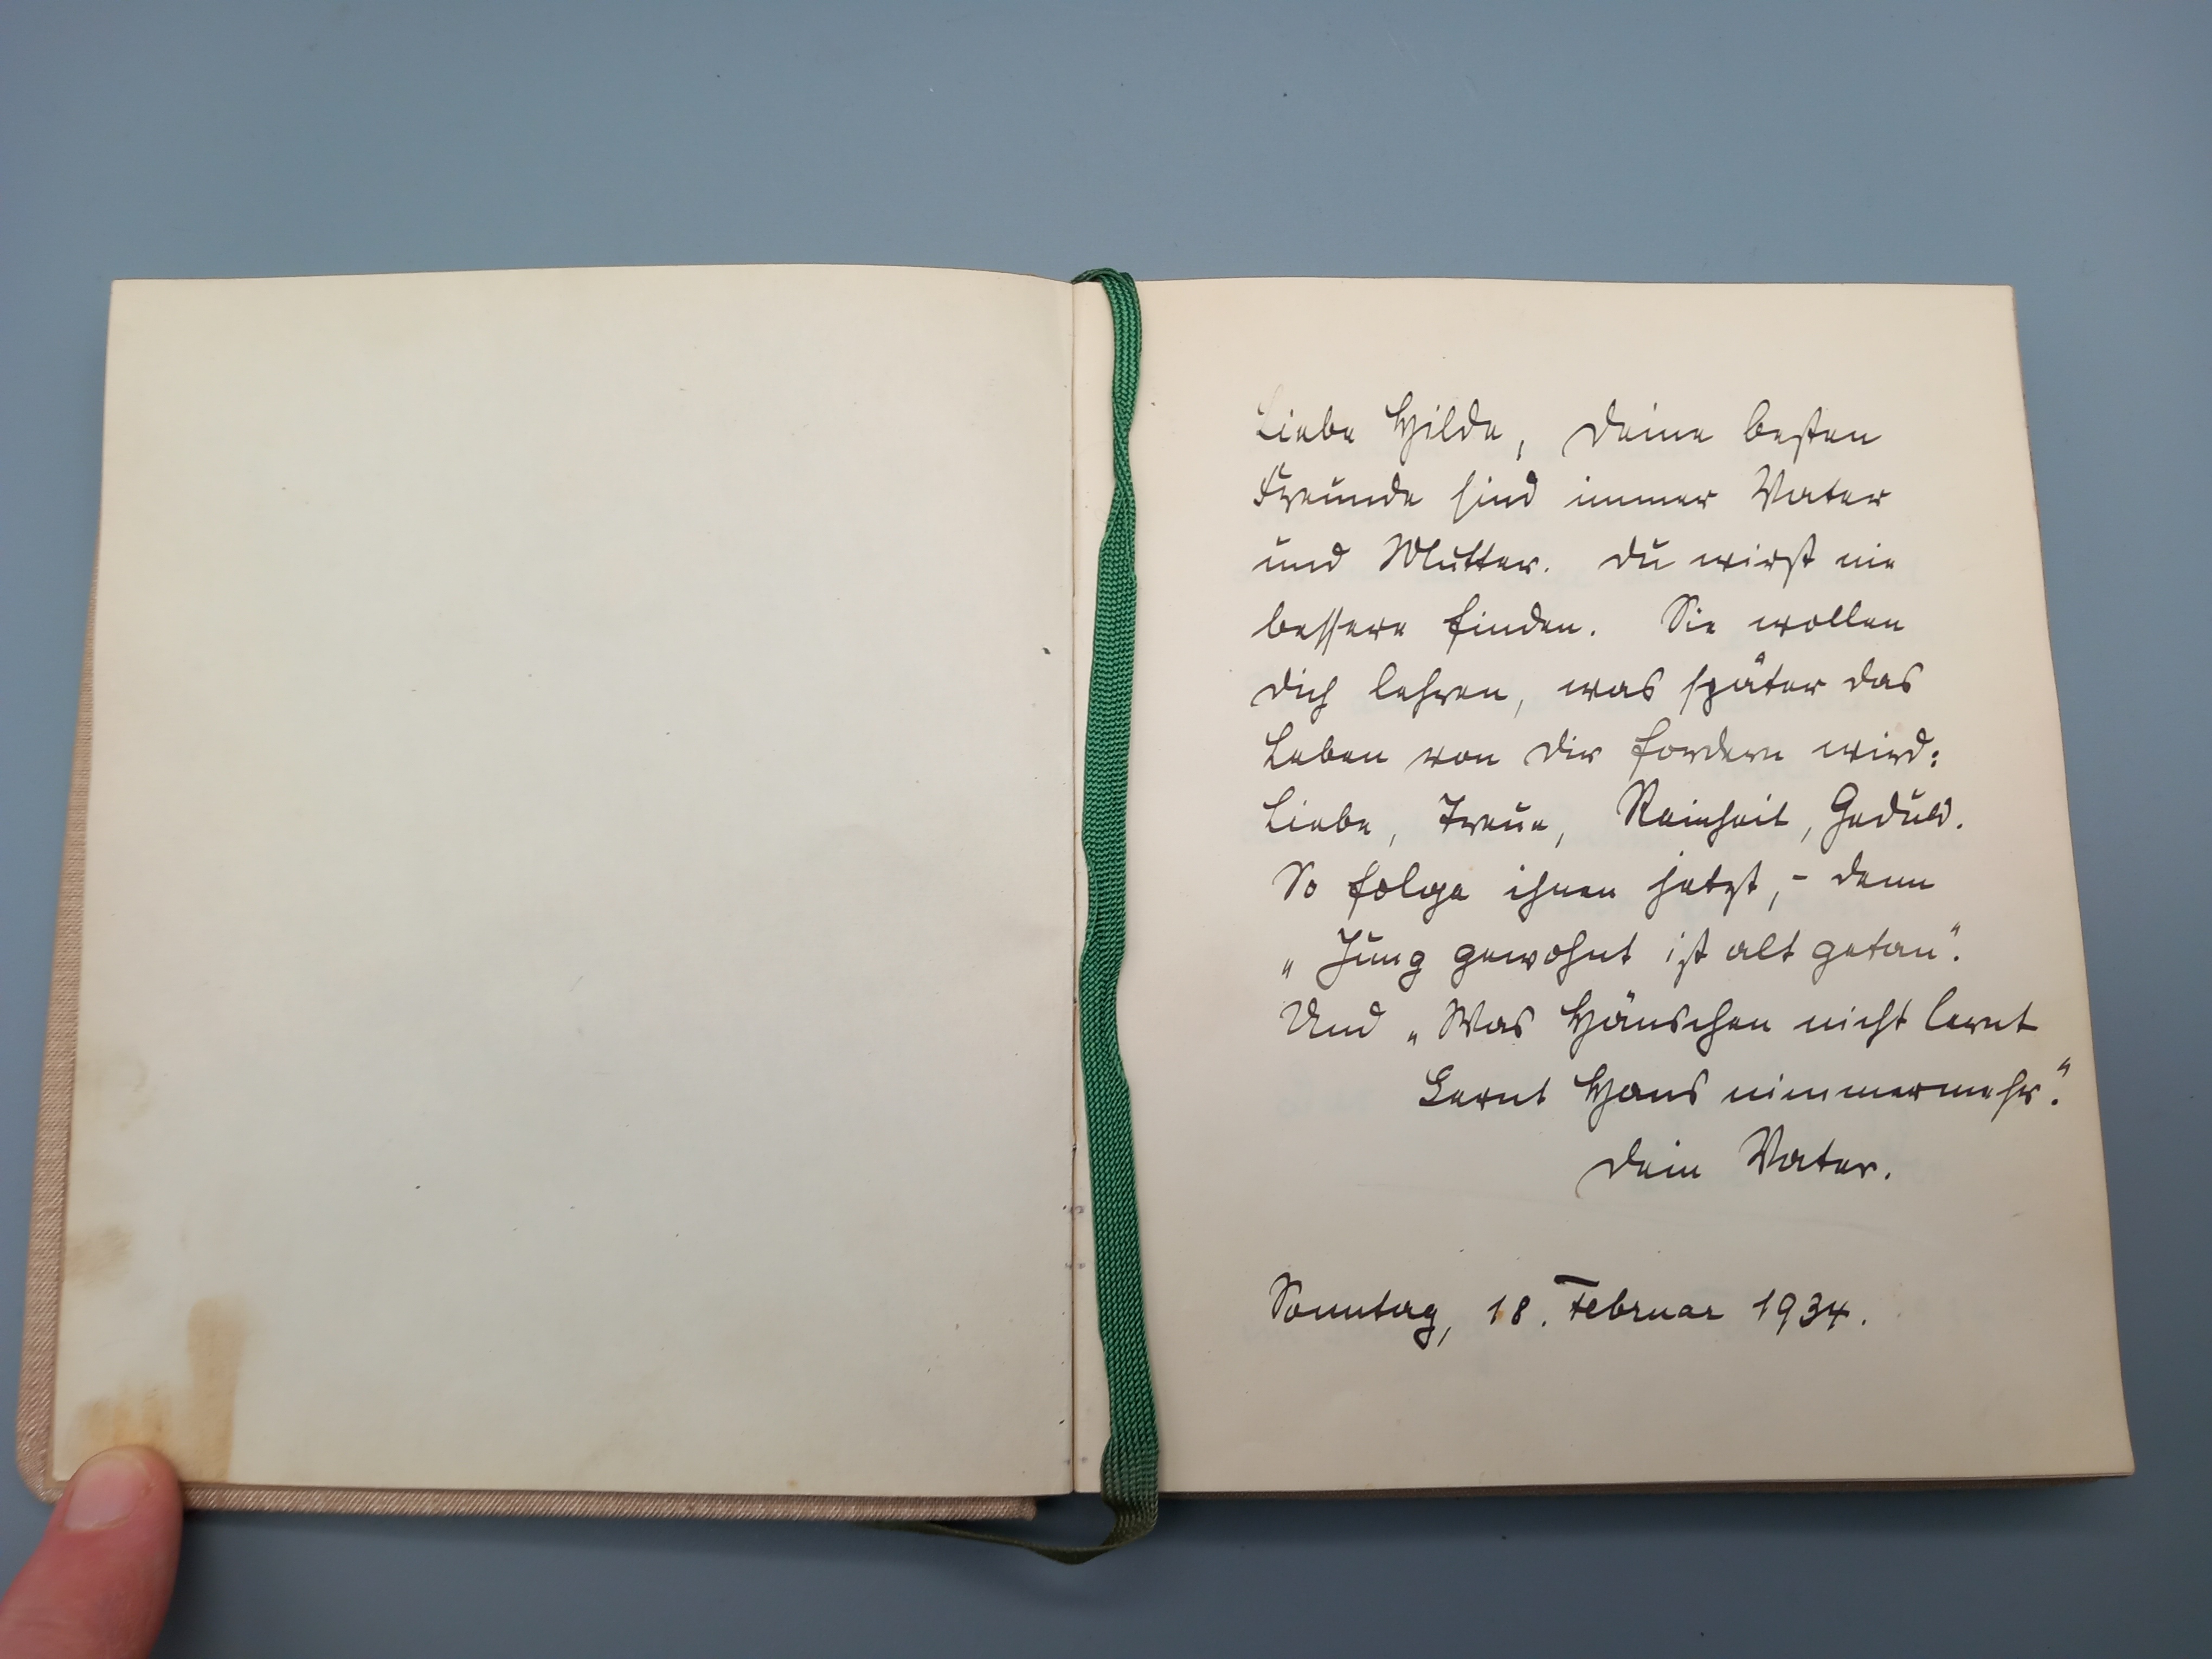 Liebe Hilde, Deine besten
Freunde sind immer Vater
und Mutter. Du wirst nie
bessere finden. Sie wollen
Dich lehren, was später das
Leben von Dir fordern wird:
Liebe, Treue, Reinheit, Geduld.
So folge ihnen jetzt, - denn
„Jung gewohnt ist alt getan“.
Und „Was Hänschen nicht lernt
Lernt Hans nimmermehr.“
Dein Vater.
Sonntag, 18. Februar 1934.